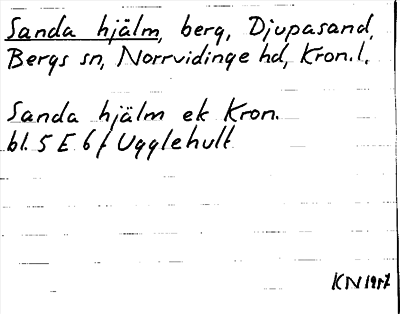 Sanda hjälm, berg, Djupasand,
Bergs sn, Norrvidinge hd, Kron.l.
Sanda hjälm ek Kron.
bl. 5 E 6 f Ugglehult
KN